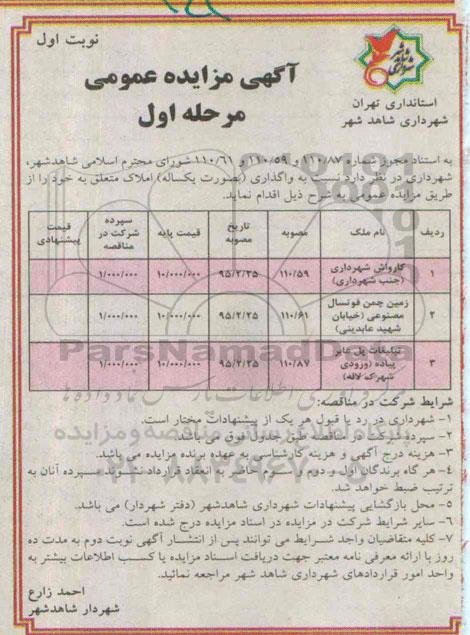 نوبت اول
آگهی مزایده عمومی
مرحله اول
استانداری تهران
شهرداری شاهد شهر
به استناد مجوز شماره ۱۱۰/۸۷ و ۱۱۰/۵۹ و ۱۱۰/۶۱ شورای محترم اسلامی شاهدشهر،
شهرداری در نظر دارد نسبت به واگذاری (بصورت یکساله) املاک متعلق به خود را از
طریق مزایده عمومی به شرح ذیل اقدام نماید.
ردیف نام ملک مصوبه تاریخ مصوبه قیمت پایه سپرده شرکت در مناقصه قیمت پیشنهادی
۱ کارواش شهرداری (جنب شهرداری) ۱۱۰/۵۹ ۹۵/۲/۲۵ ۱۰/۰۰۰/۰۰۰ ۱/۰۰۰/۰۰۰
۲ زمین چمن فوتسال مصنوعی (خیابان شهید عابدینی) ۱۱۰/۶۱ ۹۵/۲/۲۵ ۱۰/۰۰۰/۰۰۰ ۱/۰۰۰/۰۰۰
۳ تبلیغات پل عابر پیاده (ورودی شهرک لاله) ۱۱۰/۸۷ ۹۵/۲/۲۵ ۱۰/۰۰۰/۰۰۰ ۱/۰۰۰/۰۰۰
ParsNamadData
شرایط شرکت در مناقصه:
۱- شهرداری در رد یا قبول هر یک از پیشنهادات مختار است.
۲- سپرده شرکت در مناقصه طبق جدول فوق می باشد.
۳- هزینه درج آگهی و هزینه کارشناسی به عهده برنده مزایده می باشد.
۴- هر گاه برندگان اول و دوم و سوم حاضر به انعقاد قرارداد نشوند سپرده آنان به
ترتیب ضبط خواهد شد.
۵- محل بازگشایی پیشنهادات شهرداری شاهدشهر (دفتر شهردار) می باشد.
۶- سایر شرایط شرکت در مزایده در اسناد مزایده درج شده است.
۷- کلیه متقاضیان واجد شرایط می توانند پس از انتشار آگهی نوبت دوم به مدت ده
روز با ارائه معرفی نامه معتبر جهت دریافت اسناد مزایده یا کسب اطلاعات بیشتر به
واحد امور قراردادهای شهرداری شاهد شهر مراجعه نمائید.
احمد زارع
شهردار شاهدشهر